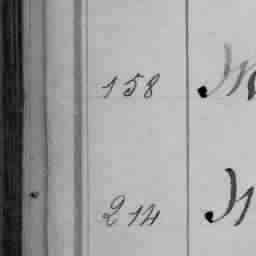 158
214